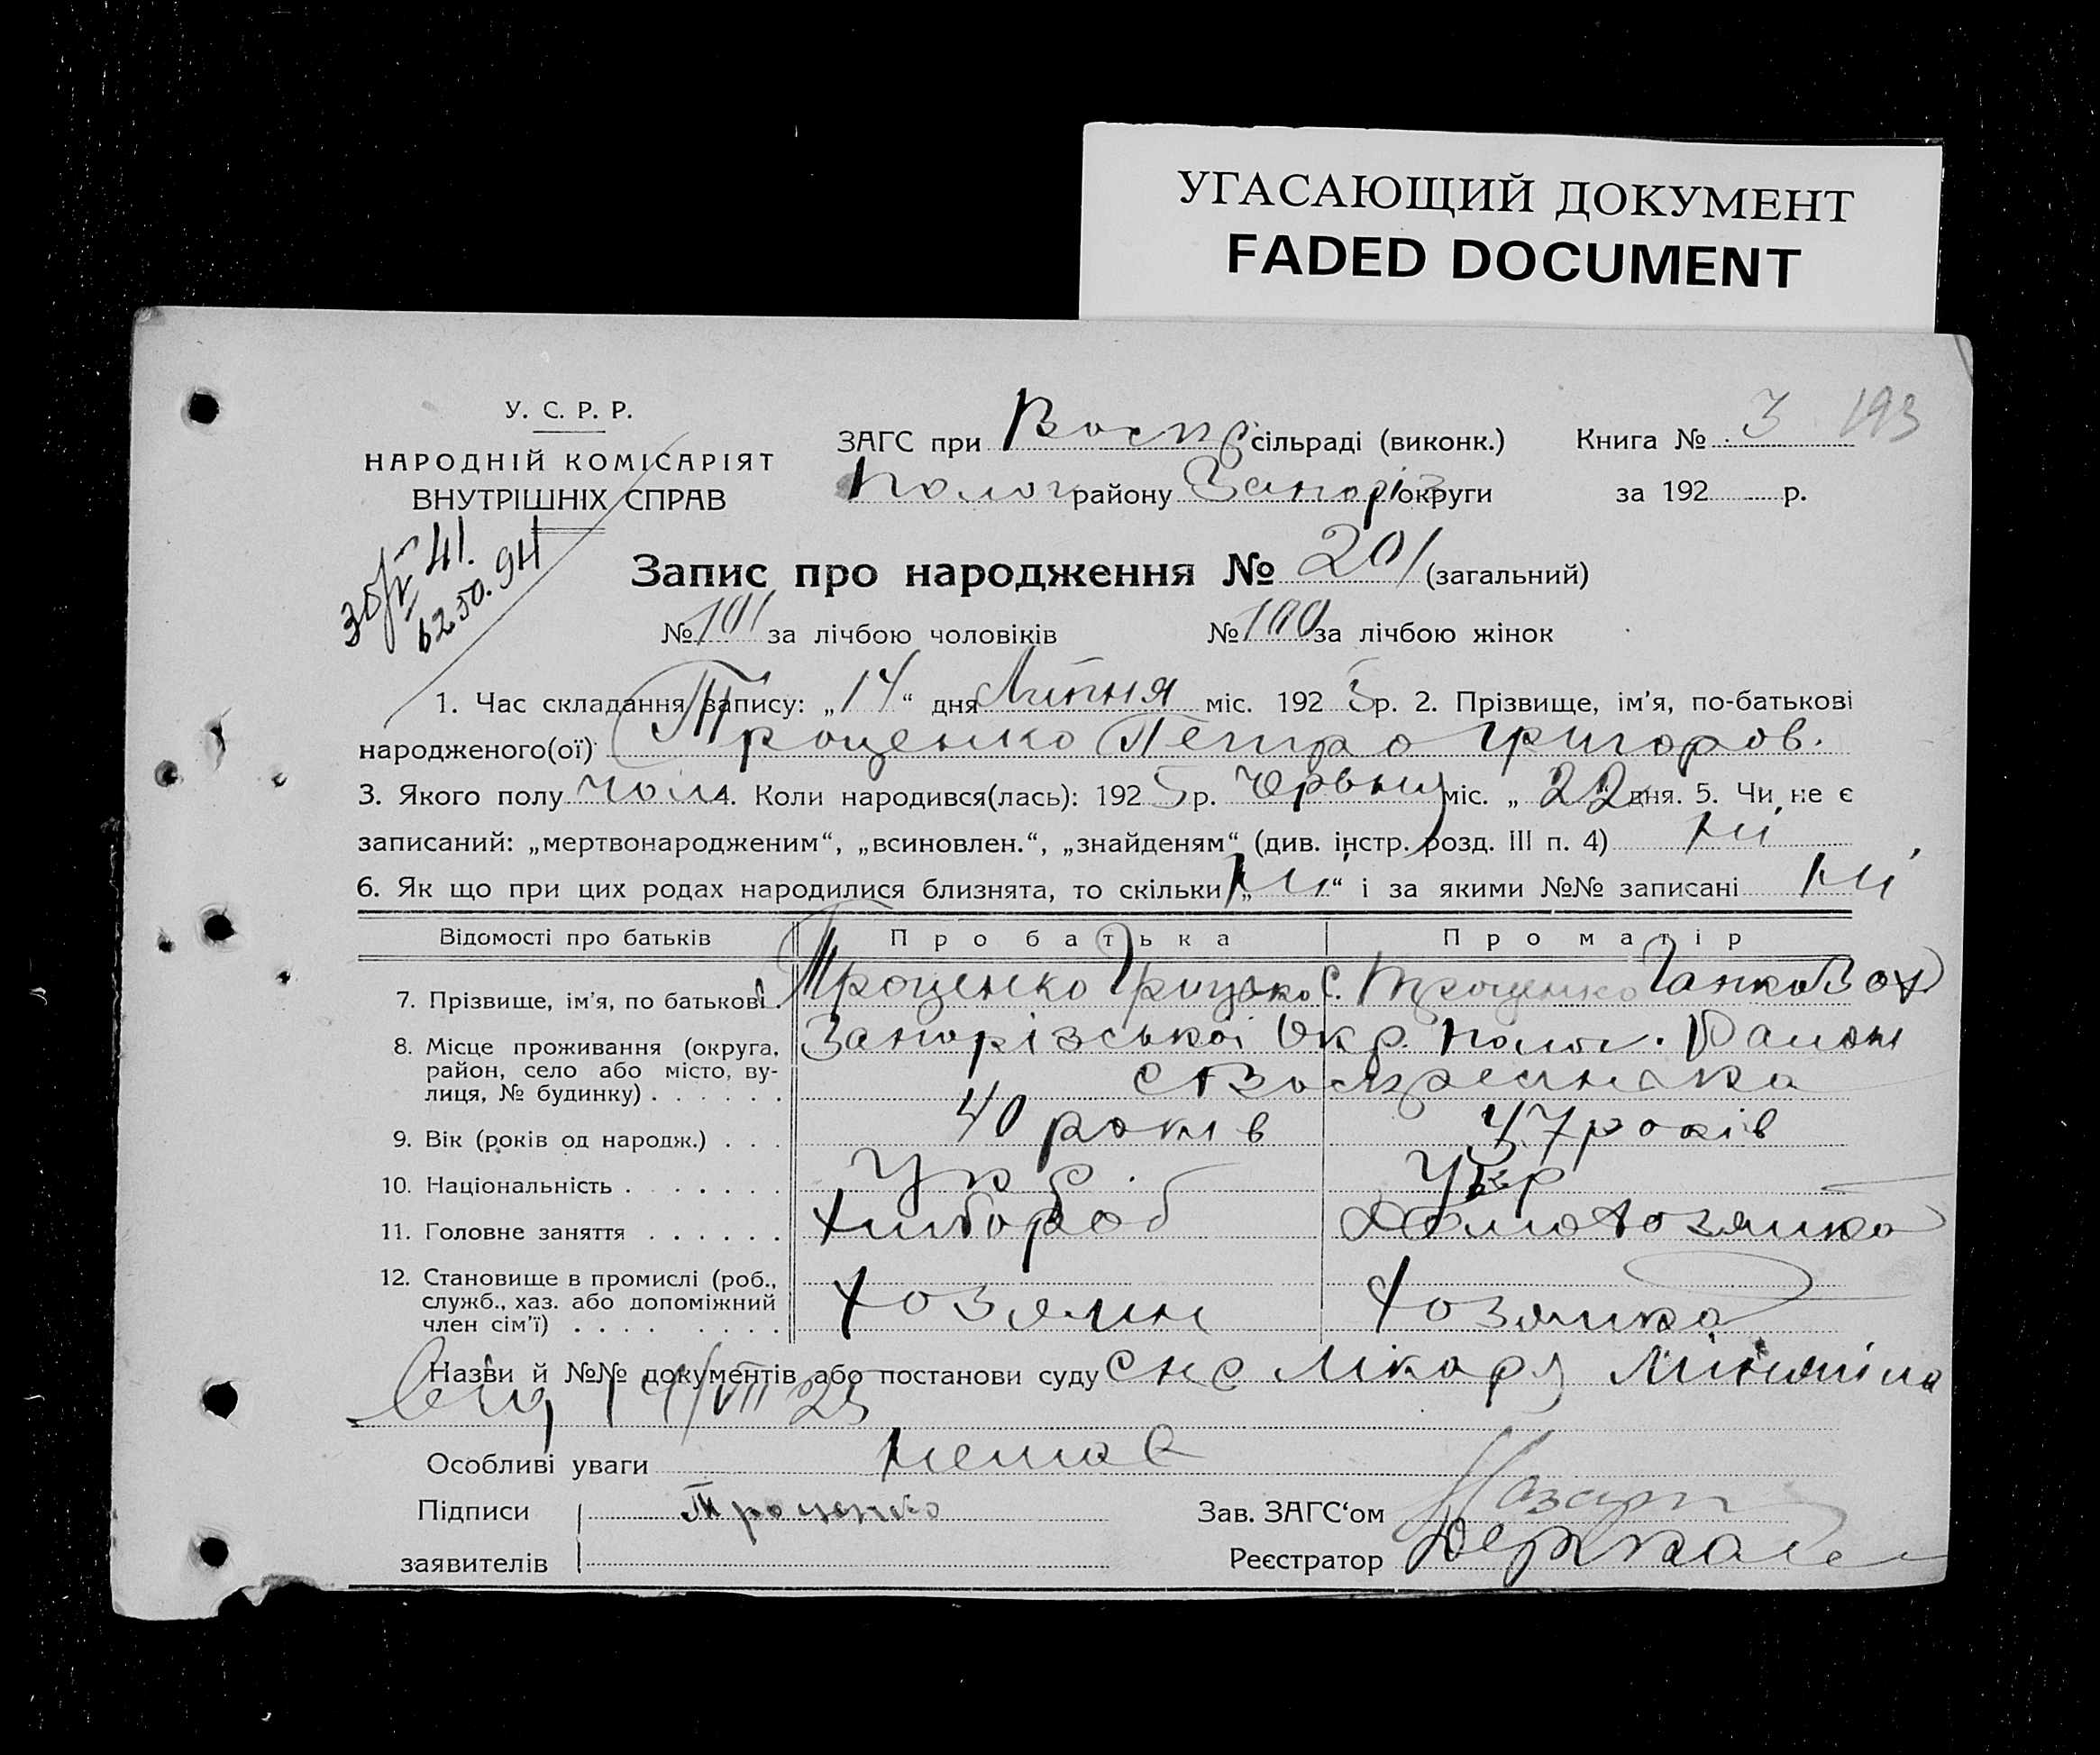 УГАСАЮЩИЙ ДОКУМЕНТ
FADED DOCUMENT
У. С. Р. Р.
НАРОДНІЙ КОМІСАРІЯТ
ВНУТРІШНІХ СПРАВ
ЗАГС при Воскр сільраді (виконк.) Книга № 3 193
Полог району Запоріз округи за 192 р.
Запис про народження № 201 (загальний)
№ 101 за лічбою чоловіків № 100 за лічбою жінок
1. Час складання запису: „14“ дня Липня міс. 1925 р. 2. Прізвище, ім’я, по-батькові
народженого(ої) Троценко Петро Григоров.
3. Якого полу чол 4. Коли народився(лась): 1925 р. Червня міс. „22 дня. 5. Чи не є
записаний: „мертвонародженим“, „всиновлен.“, „знайденям“ (див. інстр. розд. III п. 4) ні
6. Як що при цих родах народилися близнята, то скільки „ні“ і за якими №№ записані ні
Відомості про батьків Про батька Про матір
7. Прізвище, ім’я, по батькові . Троценко Грицько С. Троценко Ганна
8. Місце проживання (округа, район, село або місто, вулиця, № будинку) . . . . . . Запорізської Окр. Полог. Район
с Воскресенка
9. Вік (років од народж.) . . . 40 років 37 років
10. Національність . . . . . . . Укр. Укр
11. Головне заняття . . . . . . Хлібороб Домохозяйка
12. Становище в промислі (роб., служб., хаз. або допоміжний член сім’ї) . . . . . . . . Хозяин Хозяйка
Назви й №№ документів або постанови суду лікаря
від 14/VII 25
Особливі уваги немає
Підписи Троценко Зав. ЗАГС‘ом
заявителів Реєстратор